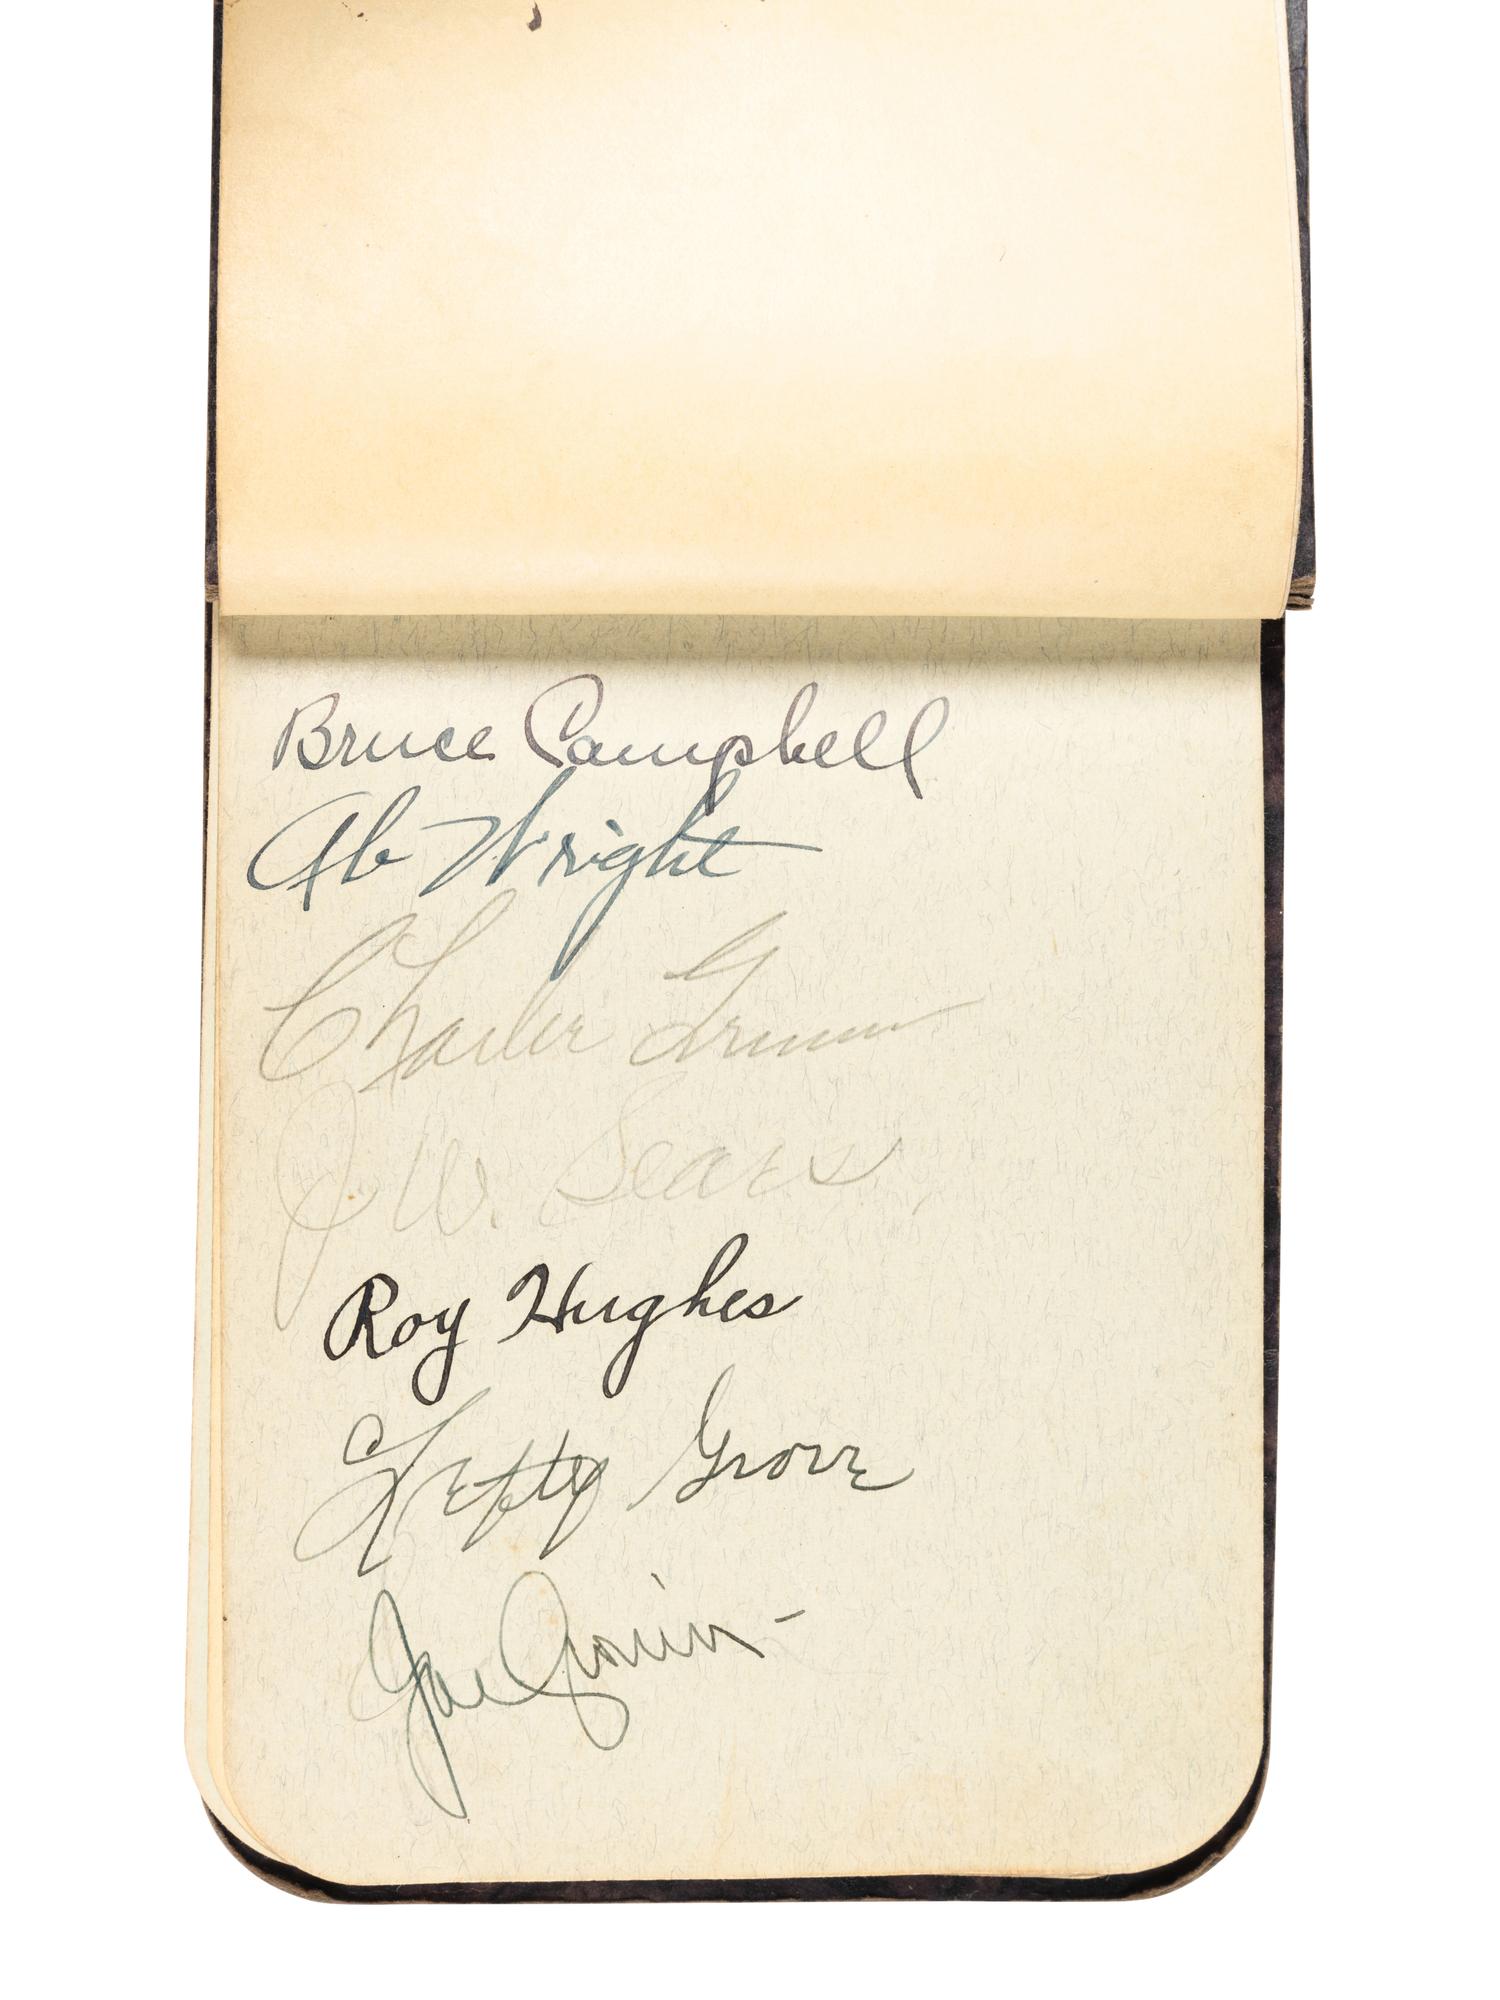 Bruce Campbell
Ab Wright
Charlie Grimm
J W. Sears
Roy Hughes
Lefty Grove
Joe Cronin